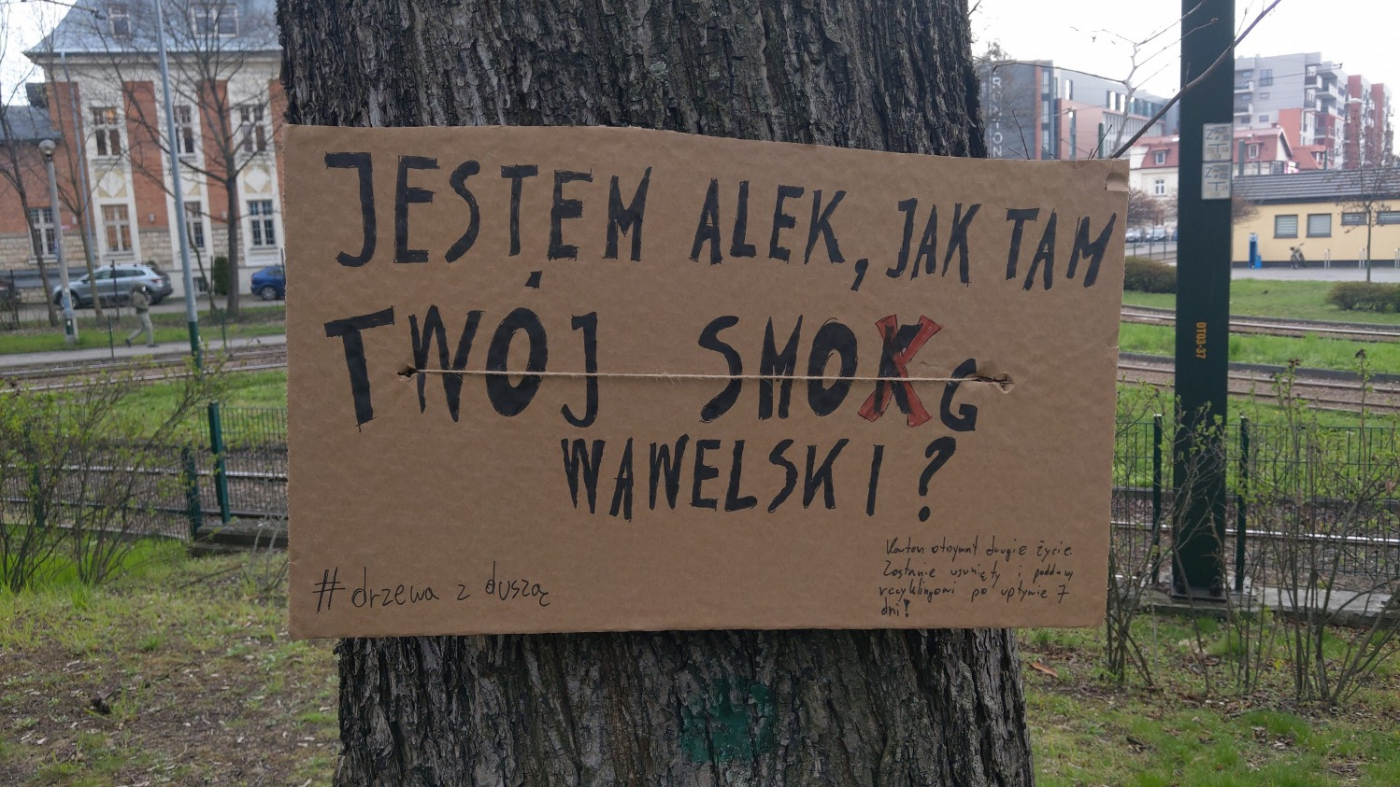 JESTEM ALEK, JAK TAM
TWÓJ SMOKG
WAWELSKI?
#drzewa z duszą
Karton otrzymał drugie życie.
Zostanie usunięty i poddany
recyklingowi po upływie 7
dni!
OT03-37